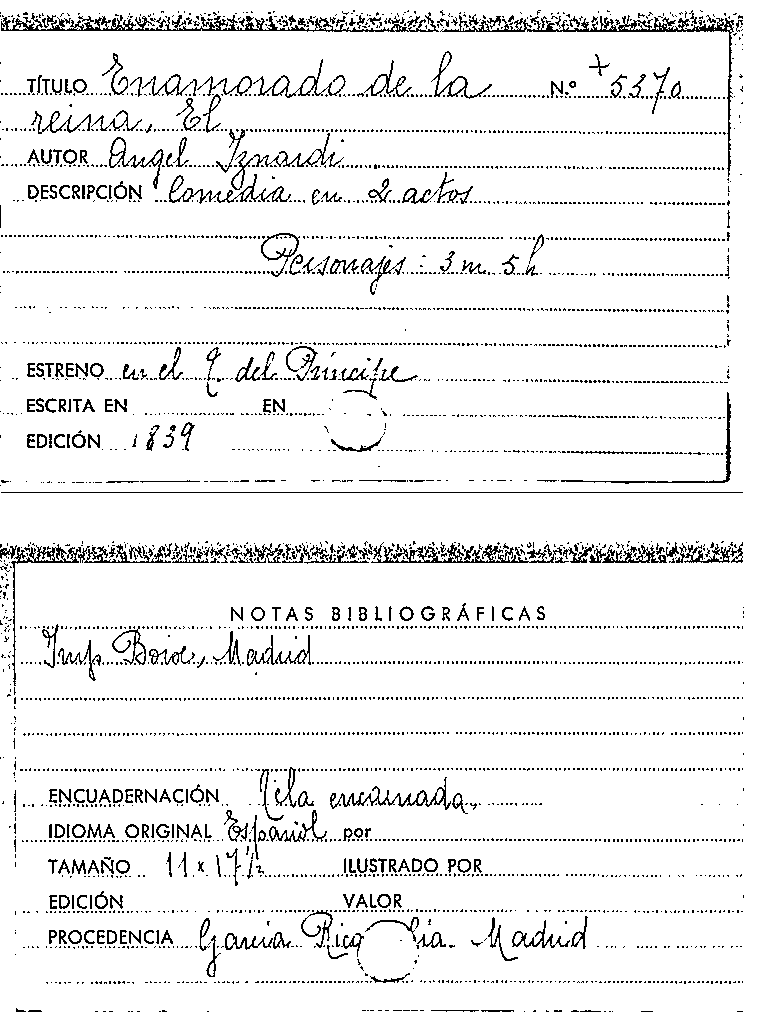 TÍTULO Enamorado de la N.º +5370
reina, El
AUTOR Angel Iznardi
DESCRIPCIÓN Comedia en 2 actos
Personajes: 3 m 5 h
ESTRENO en el T. del Príncipe
ESCRITA EN EN
EDICIÓN 1839
NOTAS BIBLIOGRÁFICAS
Imp Boix, Madrid
ENCUADERNACIÓN Tela encarnada.
IDIOMA ORIGINAL Español por
TAMAÑO 11 x 17 1/2 ILUSTRADO POR
EDICIÓN VALOR
PROCEDENCIA Garcia Rico Madrid